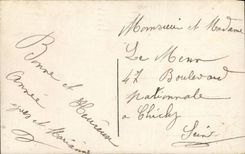 Bonne et Heureuse
Année
Monsieur et Madame
Le Menn
47 Boulevard
Nationale
à Clichy
Seine